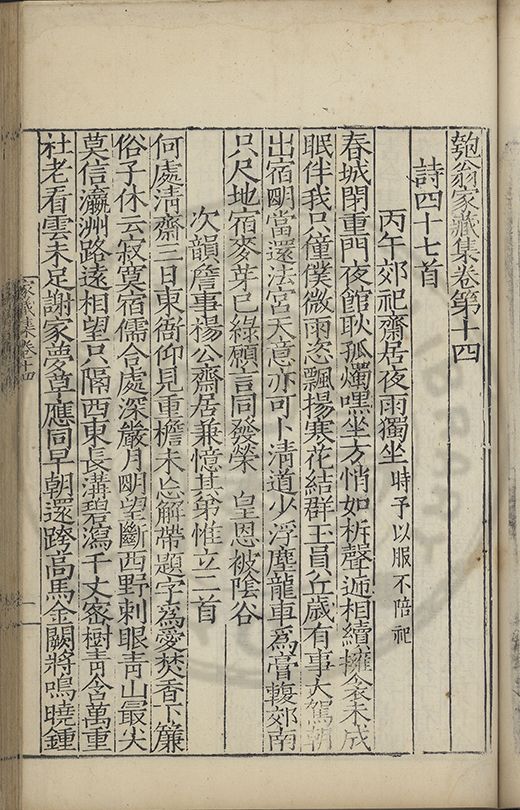 匏翁家藏集卷第十四
詩四十七首
丙午郊祀齋居夜雨獨坐 時予以服不陪祀
春城閉重門夜館耿孤燭嘿坐方悄如柝聲迊相續擁衾未成
眠伴我只僮僕微雨恣飄揚寒花結群玉員丘歲有事大駕朝
出宿明當還法宮天意亦可卜清道少浮塵龍車為膏䡩郊南
只尺地宿麥芽已綠願言同發榮 皇恩被陰谷
次韻詹事楊公齋居兼憶其弟惟立二首
何處清齋三日東衙仰見重檐未忘解帶題字為愛焚香下簾
俗子休云寂寞宿儒合處深嚴月明望斷西野刺眼青山最尖
莫信瀛洲路遠相望只隔西東長溝碧瀉千丈密樹青含萬重
杜老看雲未足謝家夢草應同早朝還跨高馬金闕將鳴曉鍾
家藏集卷十四